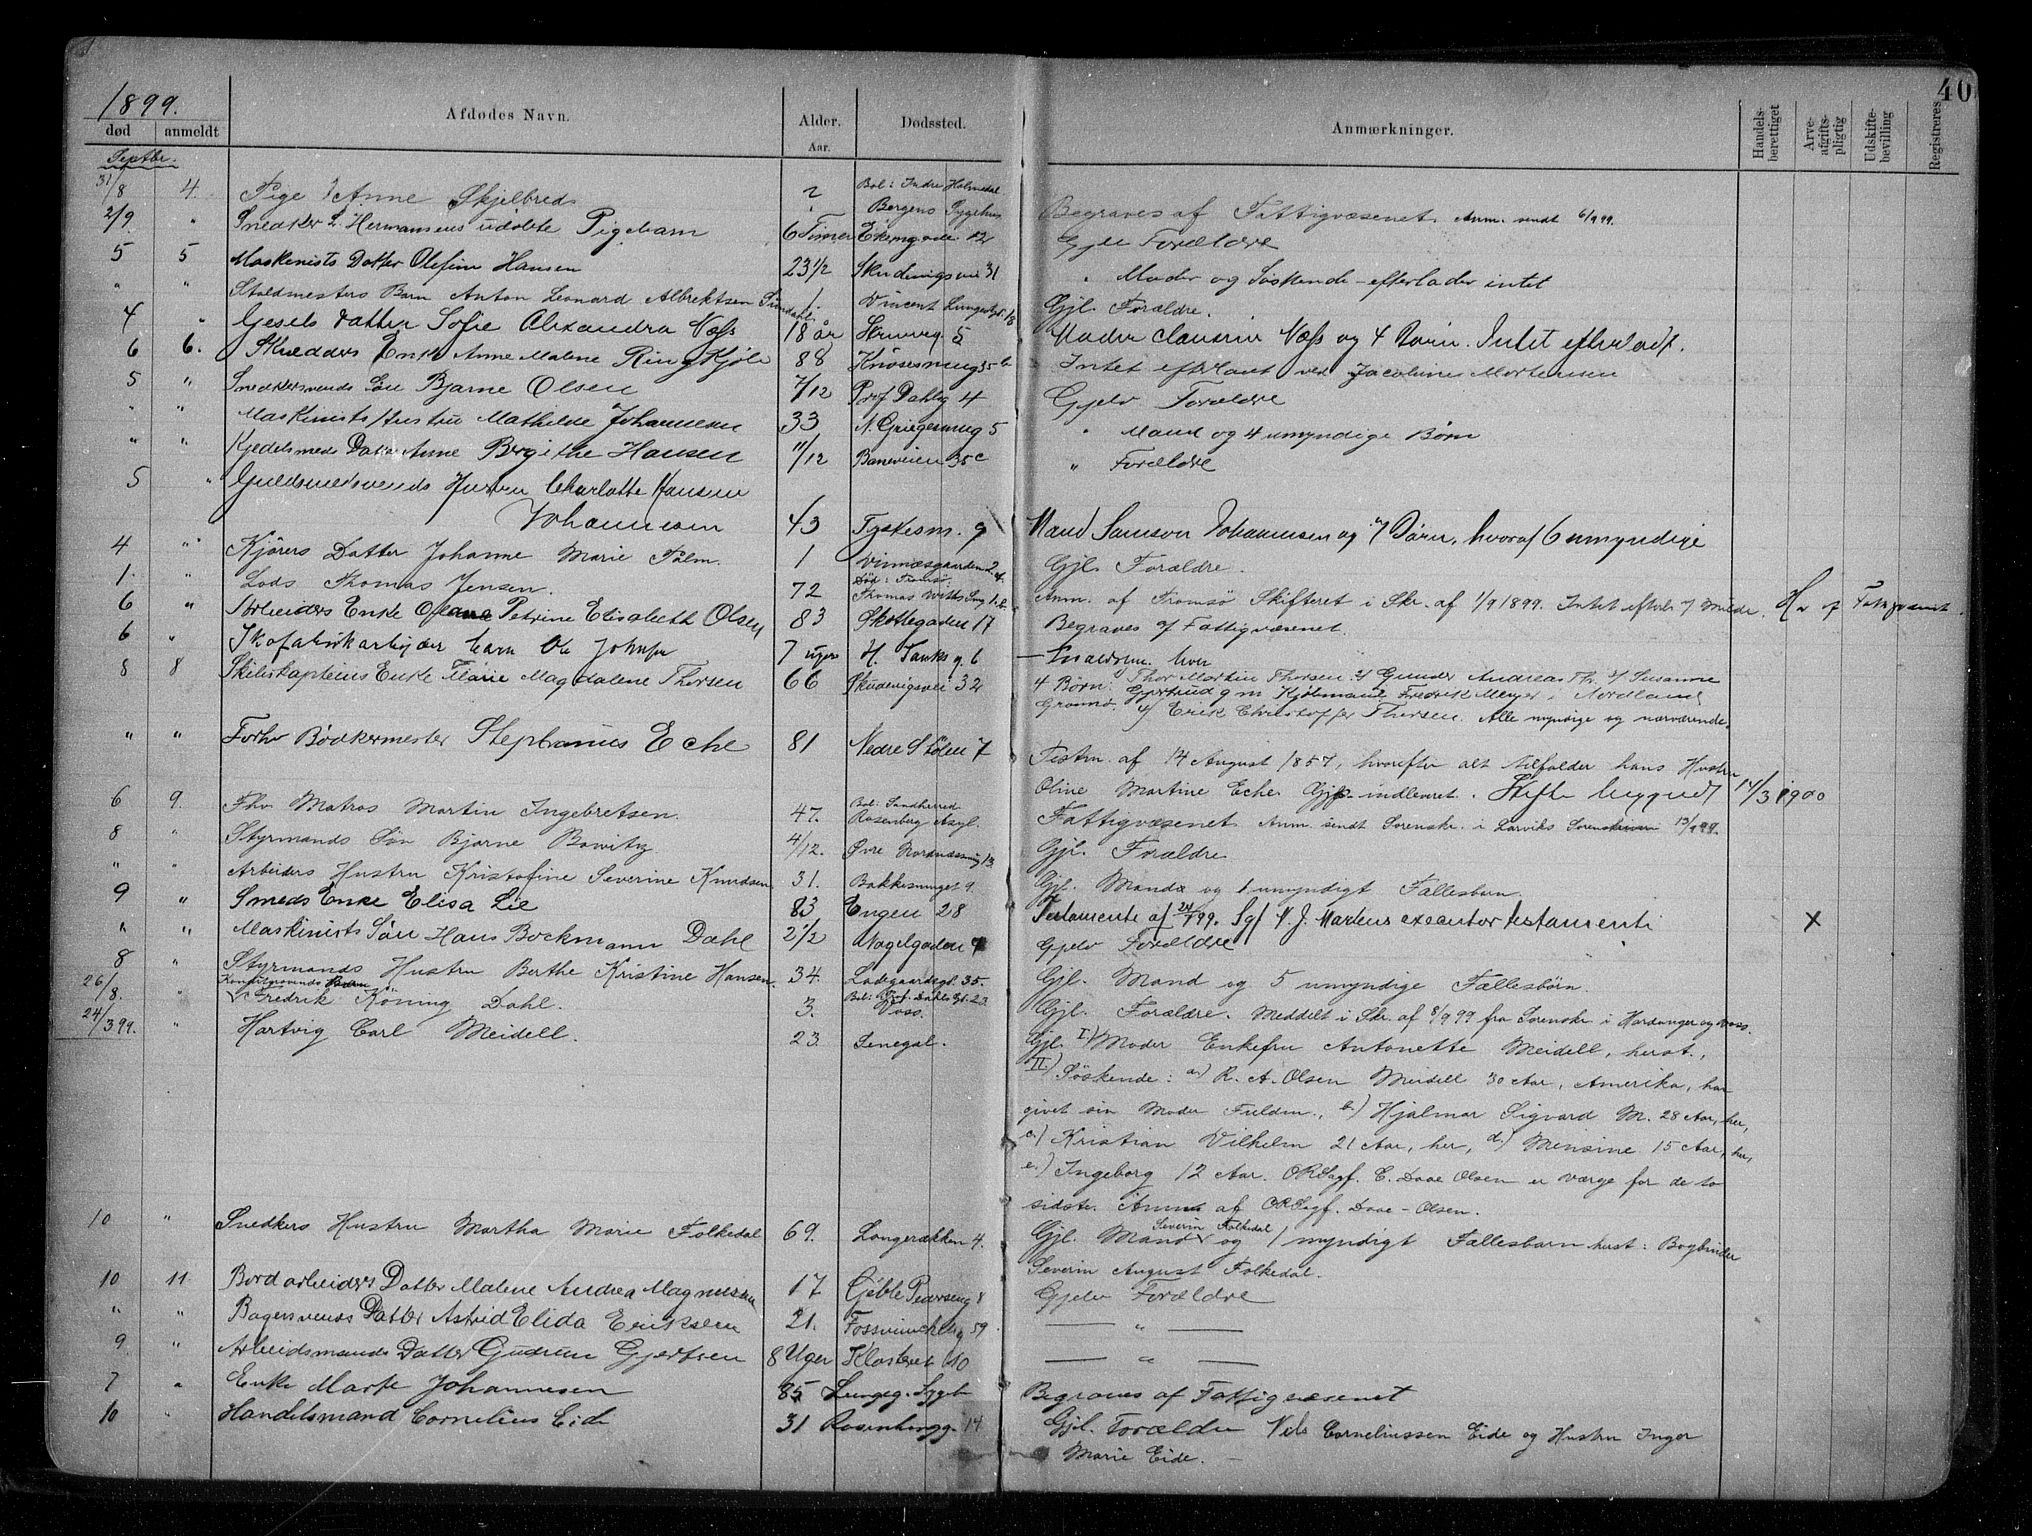 40
1899.
død anmeldt Afdødes Navn. Alder. Aar. Dødssted. Anmærkninger. Handelsberettiget Arveafgiftspligtig Udskiftebevilling Registreres
Septbr.
31/8 4. Pige Anne Skjelbred 2 Bol: Indre Holmedal Bergens Sygehus Begraves af Fattigvæsenet. Anm. sendt 6/9 99.
2/9. " Snedker L. Hermansens udøbte Pigebarn 6 Timer Gjlv Forældre
5 5 Maskinists Datter Olefine Hansen 23 1/2 Skudevigsvei 31 " Moder og Søskende - efterlader intet
" " Staldmesters Barn Anton Leonard Albrektsen Sundahl 1. Vincent Lungesgt. 18 Gjl. Forældre.
4 " Gesels Datter Sofie Alexandra Næss 18 år Skruveg. 5 Moder Næss og 4 Børn. Intet efterladt.
6 6. Skrædders Enke Anne Malene Ringkjøb 88 Knøsesmug 35 b Intet efterladt ved Jacobine Mortensen
5 " Snedkersvends Søn Bjarne Olsen 7/12 Prof Dahlsg 4 Gjelv Forældre
" " Maskinists Hustru Mathilde Johannesen 33 N. Griegesmug 5 " Mand og 4 umyndige Børn
" " Kjedelsmeds Datter Anne Bergithe Hansen 11/12 Baneveien 35c " Forældre
5 " Guldsmedsvends Hustru Charlotte Hansen
Johannesen 43 Tyskesm. 9 Mand Samson Johannesen og 7 Børn, hvoraf 6 umyndige
4 " Kjørers Datter Johanne Marie Palm. 1 Vinnæsgaarden 2 Gjl. Forældre.
1. " Lods Thomas Jensen. 72 Død: Tromsø: Anm. af Tromsø Skifteret i Skr. af 1/9 1899. Intet efterl.
6 " Arbeiders Enke Petrine Elisabeth Olsen 83 Skottegaden 17 Begraves af Fattigvæsenet.
6 " Skofabrikarbeider barn Ole Johnsen 7 uger H. Tanks g. 6 — Forældrene hver
8 8 Skibskapteins Enke Marie Magdalene Thorsen 66 Skudevigsvei 32 4 Børn: Thor Martin Thorsen. Gunder Andreas Th. Susanne
Gjertrud g m Kjøbmand Fredrik Meyer i Nordland
Erik Christoffer Thorsen. Alle myndige og nærværende.
" " Forhv Bødkermester Stephanus Eche 81 Nedre Stølen 7 Testm. af 14 August 1857, hvorefter alt tilfalder hans Hustru
Oline Martine Eche. Gjp. indleveret. 14/3 1900
6 9. Fhv. Matros Martin Ingebretsen. 47. Bol: Sandherred Rosenberg Asyl. Fattigvæsenet Anm. sendt Sorenskr. i Larviks Sorenskriveri 13/9 99.
8 " Styrmands Søn Bjarne Bowitz 4/12. Øvre Nordnæssmug 13 Gjl. Forældre
" " Arbeiders Hustru Kristofine Severine Knudsen 31. Bakkesmuget 9. Gjl. Mand og 1 umyndigt Fællesbarn.
9 " Smeds Enke Elisa Lie 83 Engen 28 Testamente af 24/1 99. Sgf N. J. Martens executor testamenti X
" " Maskinists Søn Hans Bockmann Dahl 2 1/2 Nagelgaden 7 Gjelv Forældre
8 " Styrmands Hustru Berthe Kristine Hansen. 34. Ladegaardsgt. 35. Gjl. Mand og 5 umyndige Fællesbørn.
26/8. " Fredrik Köning Dahl. 3. Bol: Prof. Dahls Gt. 23. Voss. Gjl. Forældre. Meddelt i Skr. af 8/9 99 fra Sorenskr. i Hardanger og Voss.
24/3 99. " Hartvig Carl Meidell. 23. Senegal. Gjl. I.) Moder Enkefru Antonette Meidell, herst.,
II.) Søskende: a.) R. A. Olsen Meidell 30 Aar, Amerika, har
givet sin Moder Fuldm., b.) Hjalmar Sigvard M. 28 Aar, her,
c.) Kristian Vilhelm 21 Aar, her, d.) Mensine 15 Aar, her,
e.) Ingeborg 12 Aar. ORSagf. E. Daae Olsen er værge for de to
sidste. Anm. af ORSagf. Daae-Olsen.
10 " Snedkers Hustru Martha Marie Folkedal 69. Langerækken 4. Gjl. Mand Severin Folkedal og 1 myndigt Fællesbarn herst: Bogbinder
Severin August Folkedal.
10 11 Bordarbeiders Datter Malene Andrea Magnussen 17 Gjøble Pedersensg 8 Gjelv Forældre
" " Bagersvends Datter Astrid Elida Eriksen 21. 59 — " —
9 " Arbeidsmands Datter Gudrun Gjertsen 8 Uger Klosteret 10 — " —
7 " Enke Marte Johannesen 85 Lungeg. Sygeh Begraves af Fattigvæsenet
10 " Handelsmand Cornelius Eide 31 Rosenbergg. 14 Gjl. Forældre Nils Corneliussen Eide og Hustru Inger
Marie Eide. —